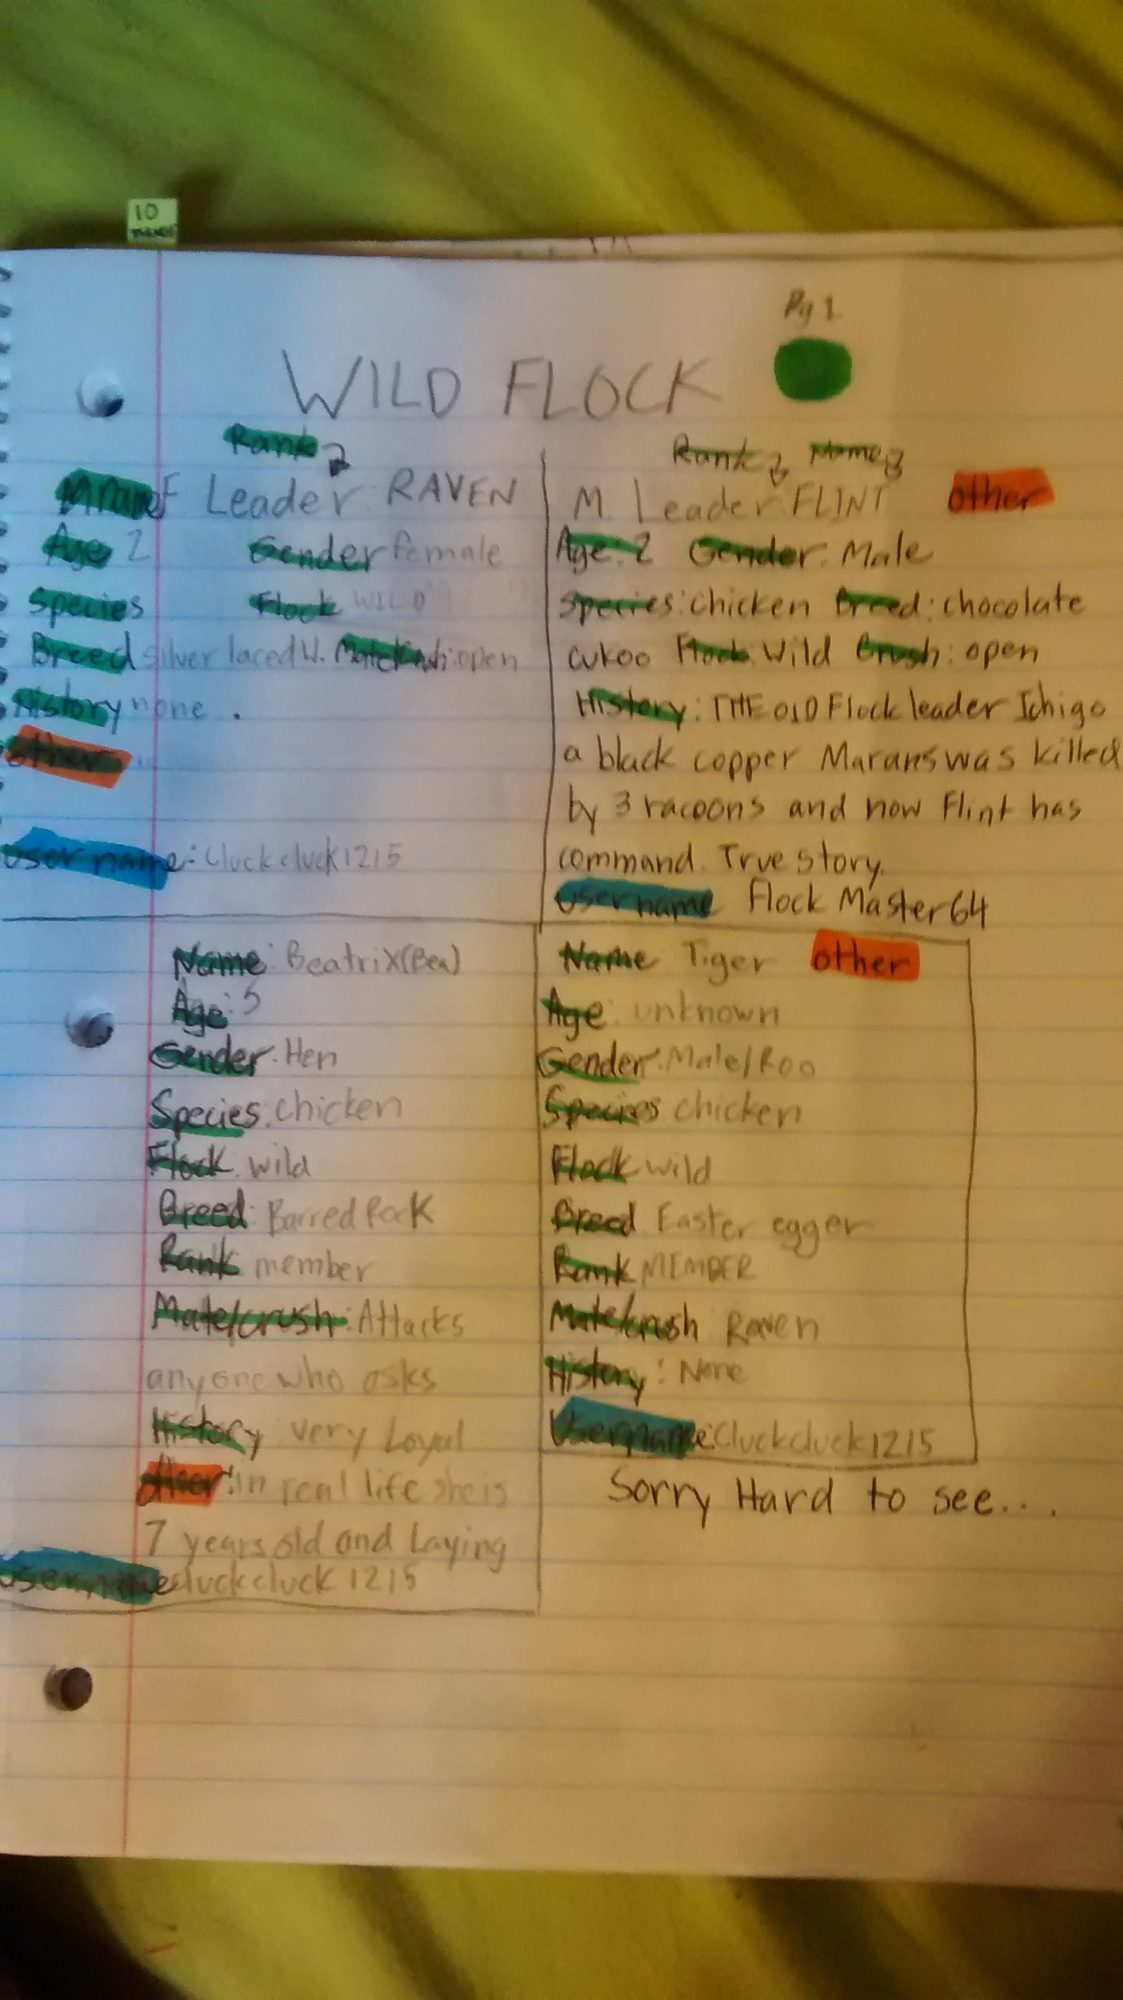 10
THINGS
Pg 1
WILD FLOCK
Rank
F Leader: RAVEN
Age 2 Gender female
Species Flock WILD
Breed silver laced W. open
History none .
other
username: Cluckcluck1215
Rank Name
M. Leader FLINT other
Age: 2 Gender: Male
Species: chicken Breed: chocolate
cukoo Flock Wild Crush: open
History: THE OlD Flock leader Ichigo
a black copper Marans was killed
by 3 racoons and now Flint has
command. True story.
Username Flock Master64
Name: Beatrix(Bea)
Age: 5
Gender: Hen
Species: chicken
Flock: wild
Breed: Barred Rock
Rank member
Mate/crush: Attacks
anyone who asks
History very Loyal
other: in real life she is
7 years old and Laying
username cluckcluck 1215
Name Tiger other
Age: unknown
Gender: Male/Roo
Species chicken
Flock wild
Breed Easter egger
Rank MEMBER
Mate/crush Raven
History: None
Username: Cluckcluck1215
Sorry Hard to see....